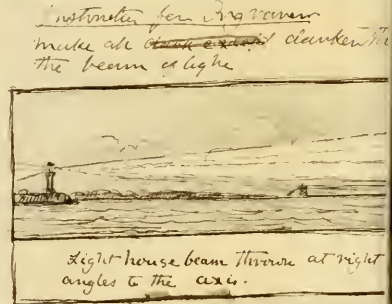 instruction for Engraver
make all dark except darker
the beam of light
Light house beam thrown at right
angles to the axis.